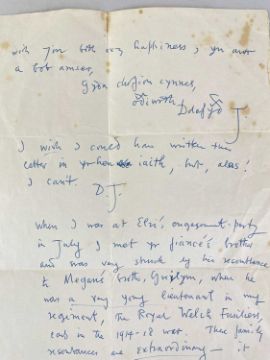 with you both every happiness, yn awr
a bob amser,
Gyda chofion cynnes,
Dafydd J
I wish I could have written this
letter in yr hen iaith, but, alas!
I can't.
D.J.
When I was at Elri's engagement-party
in July I met yr fiancé's brother
and was very struck by his resemblance
to Megan's brother, Gwilym, when he
was a very young lieutenant in my
regiment, The Royal Welch Fusiliers,
early in the 1914-18 war. These family
resemblances are extraordinary — it